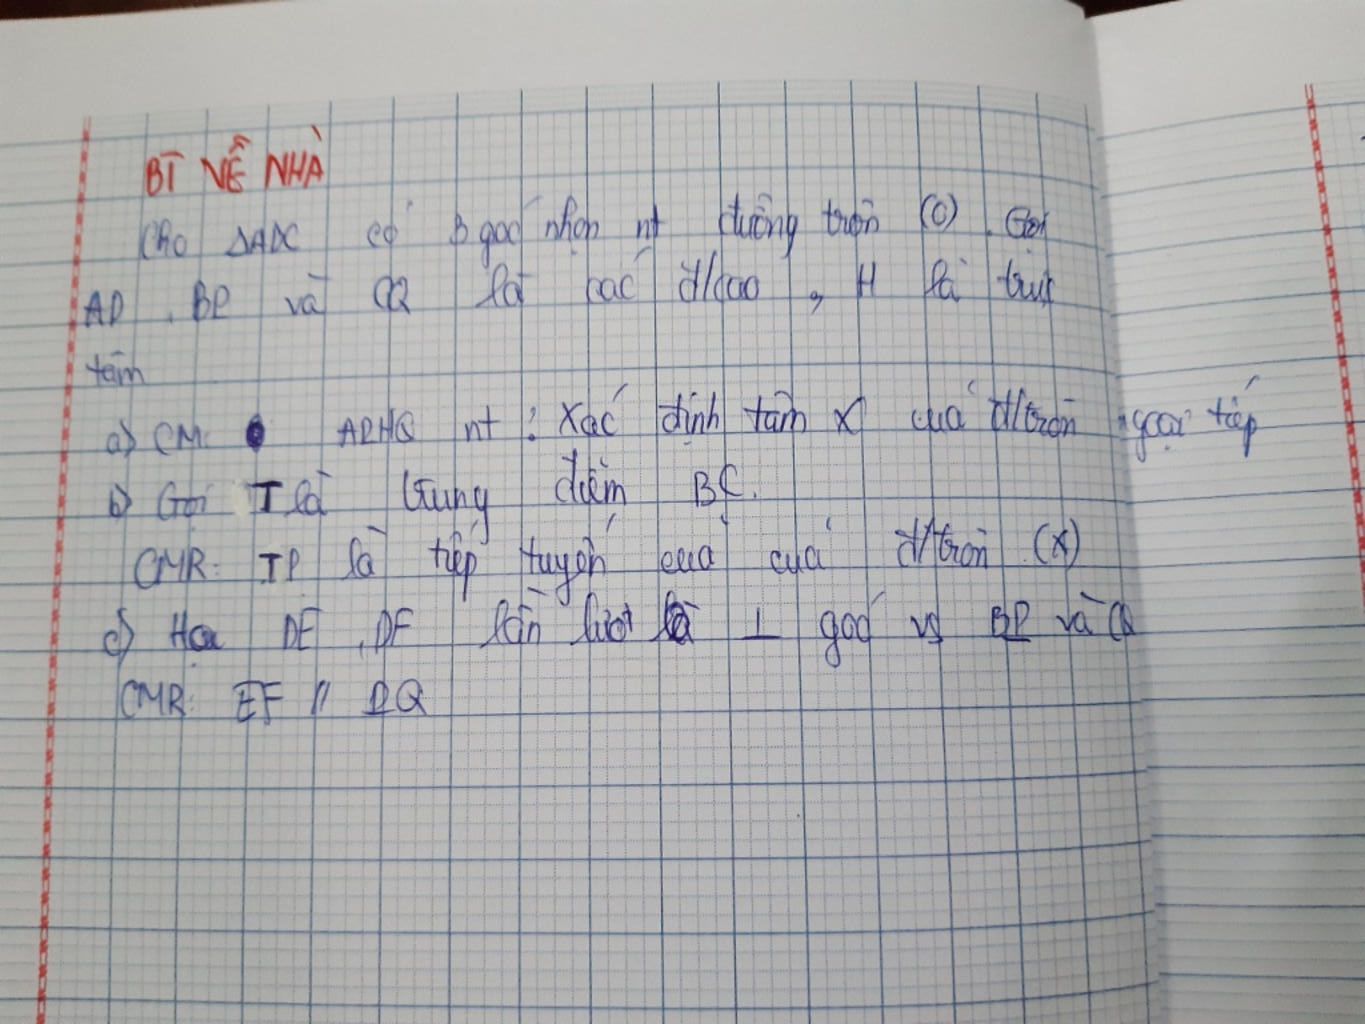 BT VỀ NHÀ
Cho ΔABC có 3 góc nhọn nt đường tròn (O). Gọi
AD, BP và CQ là các đ/cao, H là trực
tâm
a) CM: APHQ nt: Xác định tâm K của đ/tròn ngoại tiếp
b) Gọi I là trung điểm BC.
CMR: IP là tiếp tuyến của của đ/tròn (K)
c) Hạ DE, DF lần lượt là ⊥ góc vs BP và CQ
CMR: EF // PQ